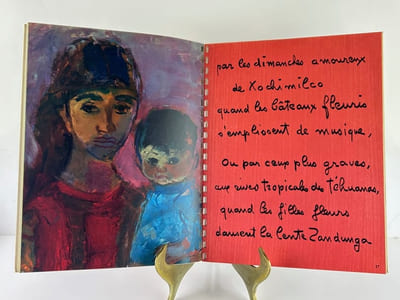 par les dimanches amoureux
de Xochimilco
quand les bâteaux fleuris
s'emplissent de musique,
ou par ceux plus graves,
aux rives tropicales des téhuanas,
quand les filles fleurs
dansent la lente Zandunga